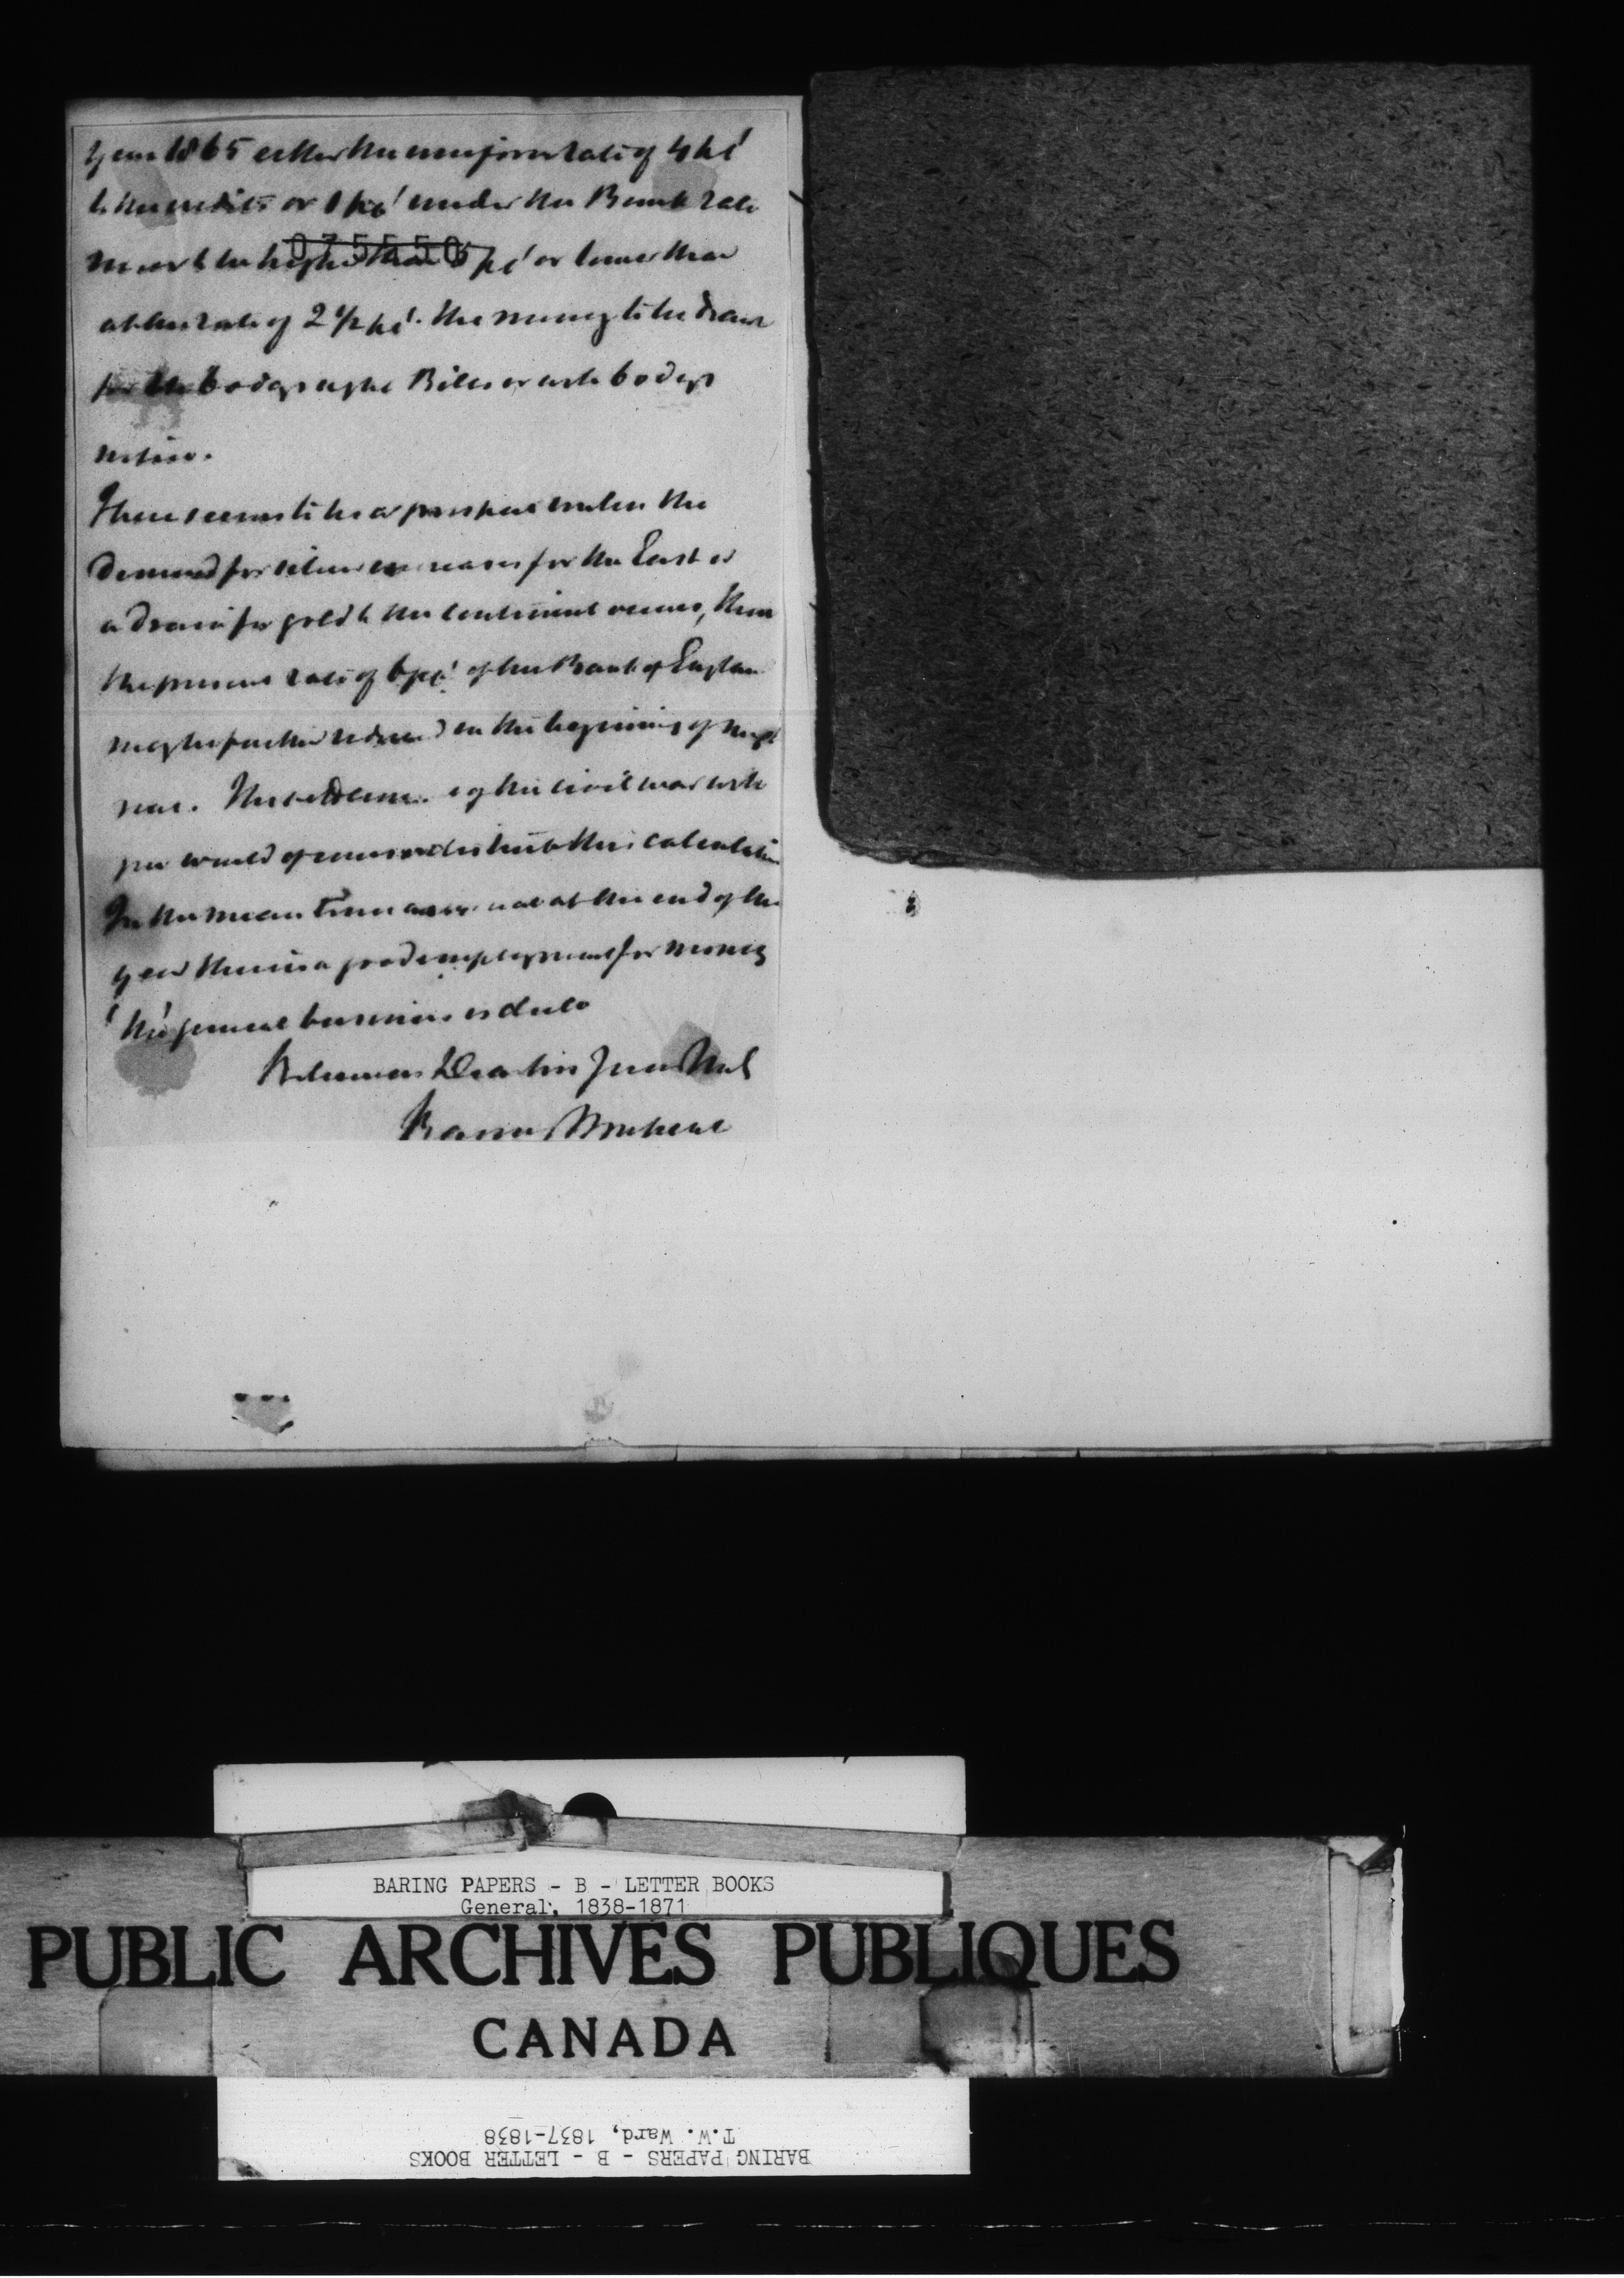 year 1865 either the uniform rate of 4 pc!
to the credits or 1 pc! under the Bank rate
never to be higher than 5 pc! or lower than
at the rate of 2 1/2 pc!. the money to be drawn
for 60 days sight Bills or with 60 days
notice.
075550
There seems to be a prospect unless the
demand for silver increases for the East or
a drain for gold to the Continent occurs, that
the present rate of 6 pc! of the Bank of England
may be further reduced in the beginning of next
year. The of the civil war with
you would of course disturb this calculation
In the mean time as usual at the end of the
year there is a good employment for money
the general business is dull
Dear Sir Your
Baring Brothers
BARING PAPERS - B - LETTER BOOKS
General, 1838-1871
PUBLIC ARCHIVES PUBLIQUES
CANADA
BARING PAPERS - B - LETTER BOOKS
T.W. Ward, 1837-1838